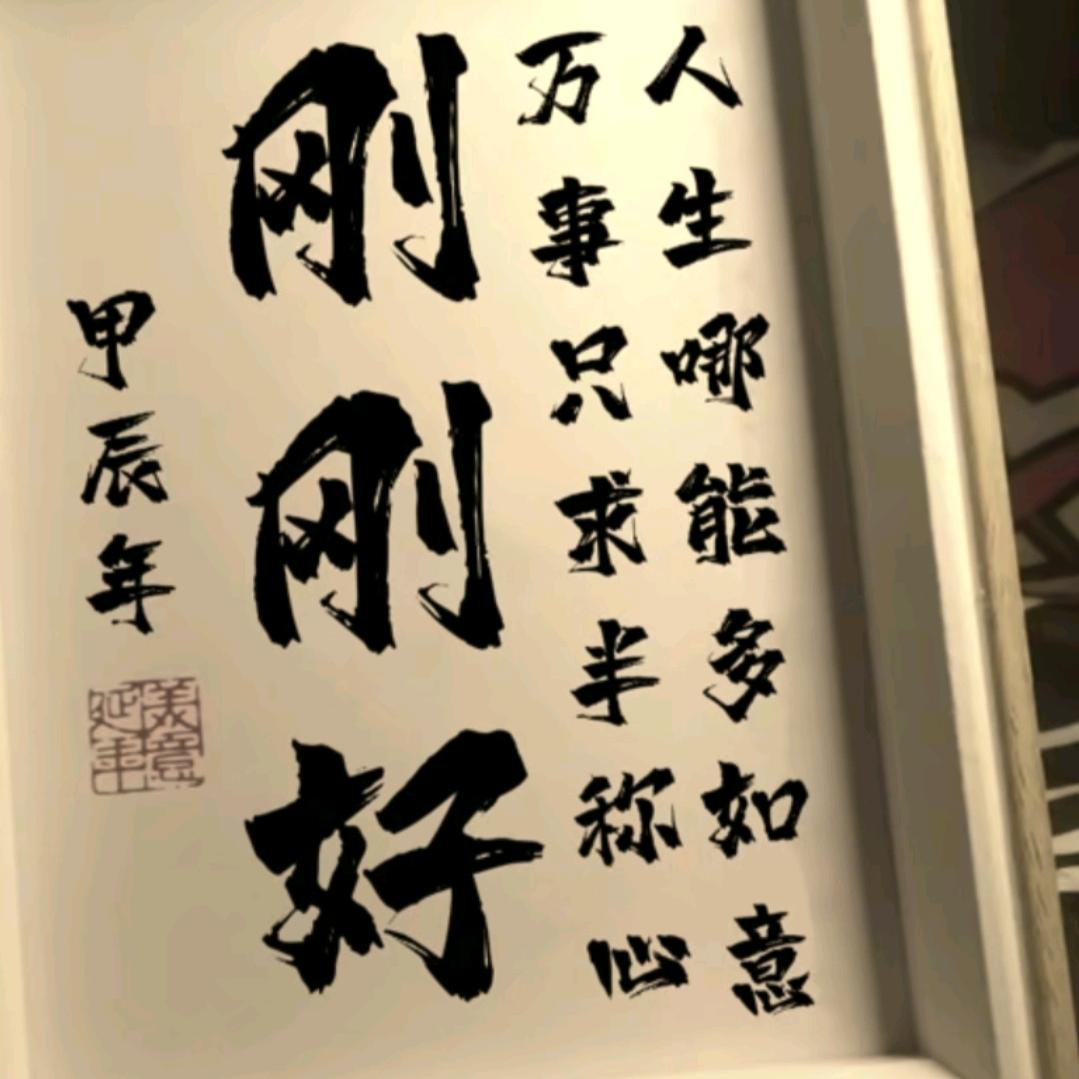 人生哪能多如意
万事只求半称心
刚刚好
甲辰年
美意
延年